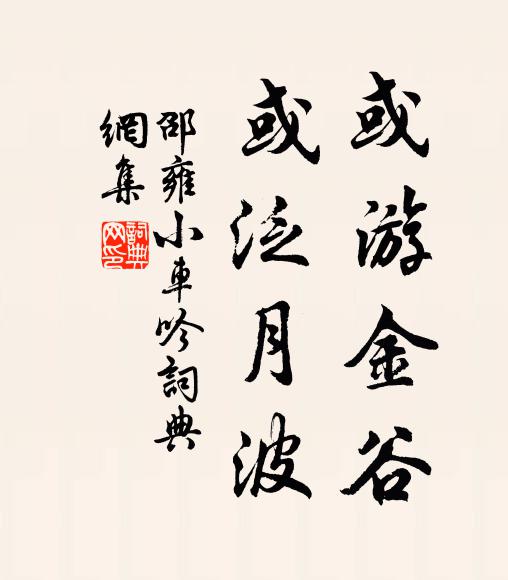 或游金谷
或泛月波
邵雍小車吟詞典
網集
詞典网印